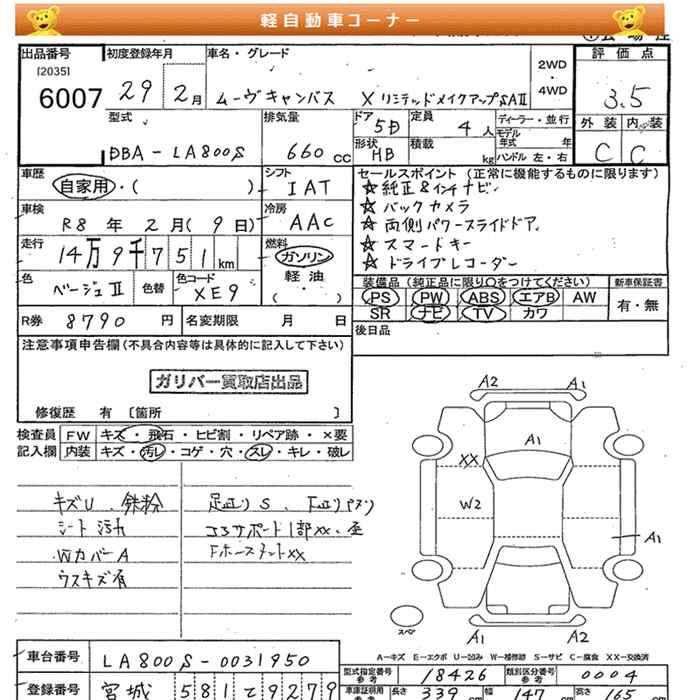 軽自動車コーナー
出品番号 初度登録年月 車名・グレード 評価点
[2035] 2WD
6007 29 2月 ムーヴキャンバス XリミテッドメイクアップSAⅡ ・ 3.5
4WD
型式 排気量 ドア 5D 定員 4人 ディーラー・並行 外装 内装
モデル年式 年式
DBA-LA800S 660cc 形状 HB 積載 kg ハンドル 左・右 C C
車歴 シフト セールスポイント (正常に機能するものに限ります)
自家用・( ) IAT ☆純正8インチナビ
車検 冷房 ☆バックカメラ
R8年2月(9日) AAC ☆両側パワースライドドア
走行 燃料 ☆スマートキー
14万9千751km ガソリン ☆ドライブレコーダー
色 色コード 軽油
ベージュⅡ 色替 XE9 ・( )
装備品(純正品に限り○をつけてください) 新車保証書
PS PW ABS エアB AW 有・無
SR ナビ TV カワ
R券 8790円 名変期限 月 日 後日品
注意事項申告欄(不具合内容等は具体的に記入して下さい)
ガリバー買取店出品
修復歴 有 〔箇所 〕
検査員 FW キズ・飛石・ヒビ割・リペア跡・×要
記入欄 内装 キズ・汚レ・コゲ・穴・スレ・キレ・破レ
キズU、鉄粉
シート汚れ
WカバーA
ウスキズ有
足廻りS、下廻りパスリ
コアサポート1部XX、歪
FホースメントXX
A2 A1
A1
XX
W2
A1
A1 A2
スペア
A-キズ E-エクボ U-凹み W-補修跡 S-サビ C-腐食 XX-交換済
車台番号 LA800S-0031950
型式指定番号 参考 18426 類別区分番号 参考 0004
登録番号 宮城 581 て 9279
車庫証明用 参考 長さ 339 幅 147 高さ 165